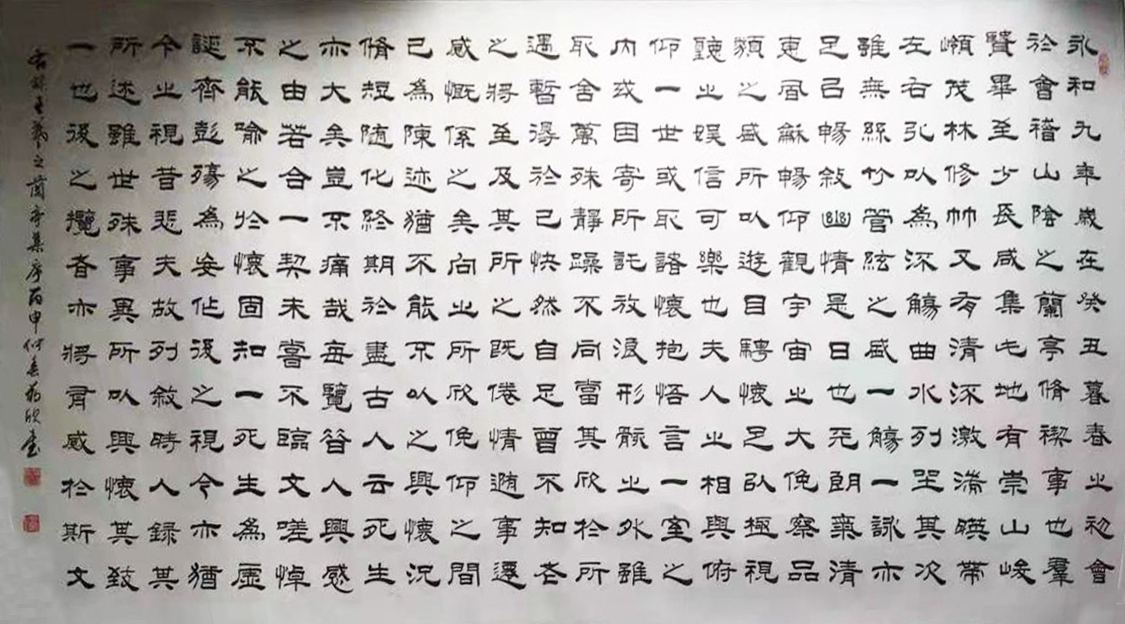 永和九年歲在癸丑暮春之初會
於會稽山陰之蘭亭脩禊事也羣
賢畢至少長咸集此地有崇山峻
嶺茂林修竹又有清流激湍暎帶
左右引以為流觴曲水列坐其次
雖無絲竹管絃之盛一觴一詠亦
足以暢敘幽情是日也天朗氣清
惠風龢暢仰觀宇宙之大俛察品
類之盛所以遊目騁懷足以極視
聽之娛信可樂也夫人之相與俯
仰一世或取諸懷抱悟言一室之
內或因寄所託放浪形骸之外雖
取舍萬殊靜躁不同當其欣於所
遇暫得於己快然自足曾不知老
之將至及其所之既倦情隨事遷
感慨係之矣向之所欣俛仰之間
已為陳迹猶不能不以之興懷況
脩短隨化終期於盡古人云死生
亦大矣豈不痛哉每覽昔人興感
之由若合一契未嘗不臨文嗟悼
不能喻之於懷固知一死生為虛
誕齊彭殤為妄作後之視今亦猶
今之視昔悲夫故列敘時人錄其
所述雖世殊事異所以興懷其致
一也後之攬者亦將有感於斯文
右錄王羲之蘭亭集序丙申何欣書